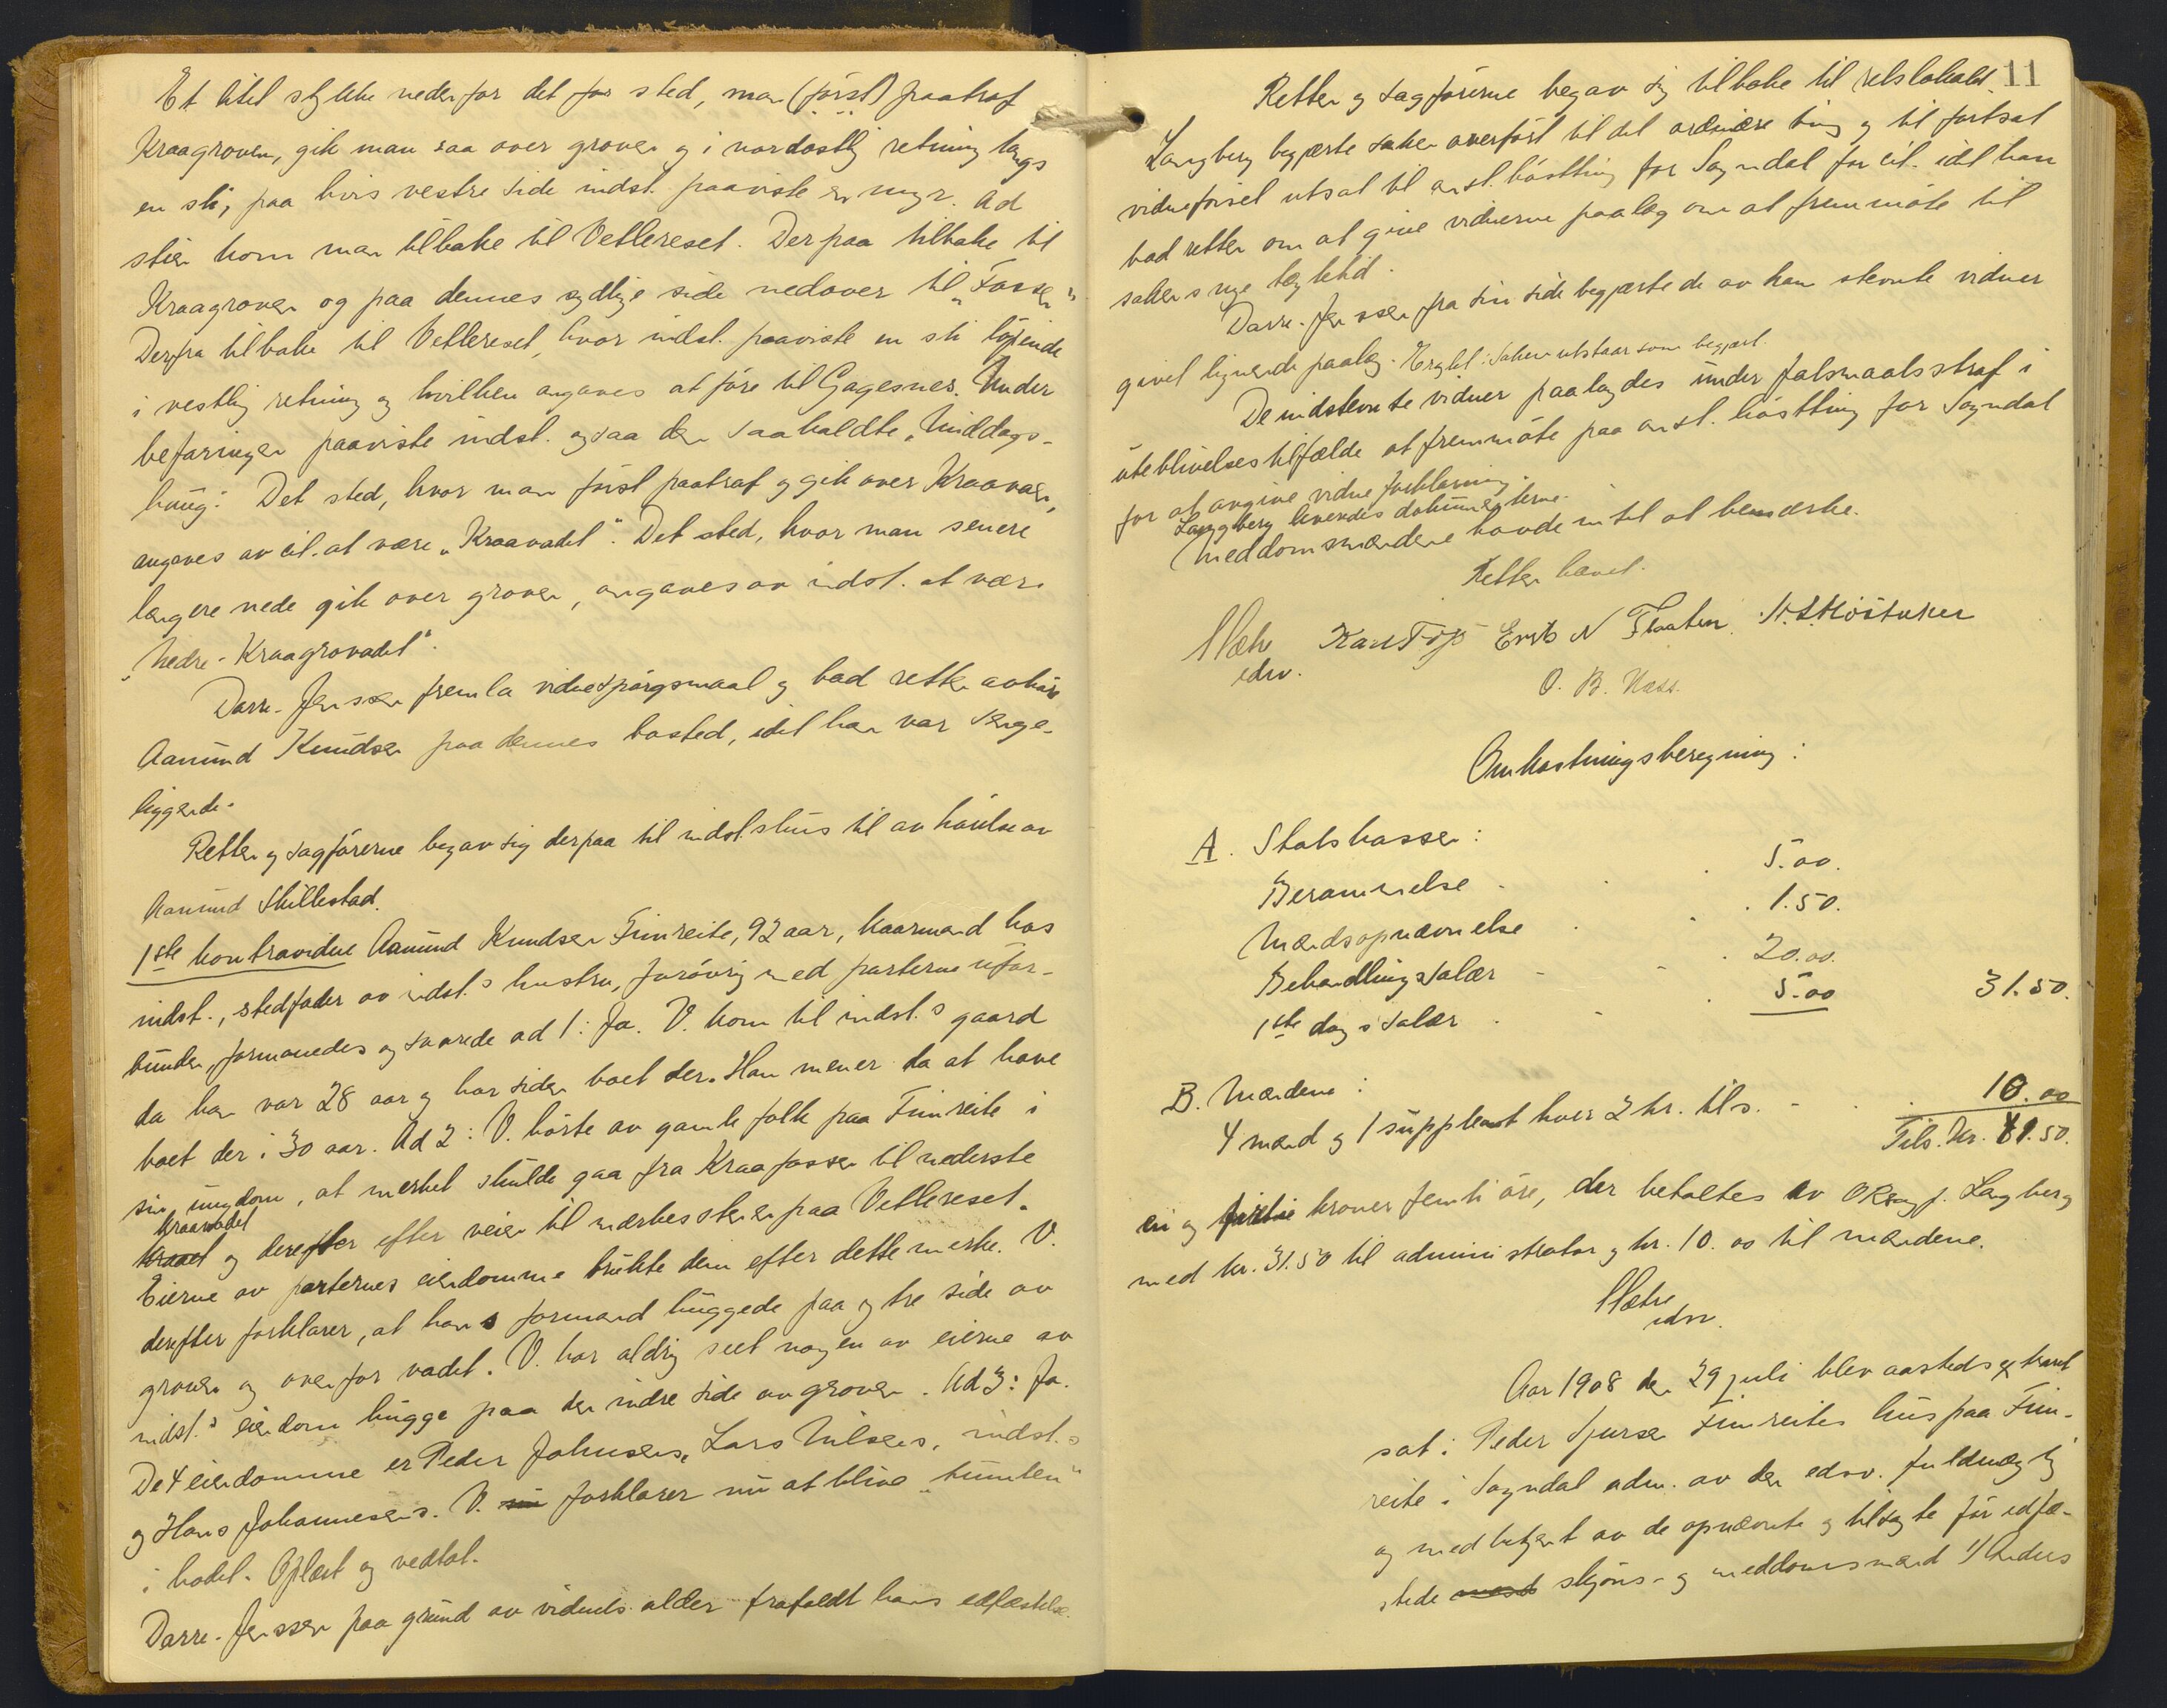 Et litet stykke nedenfor det før sted, man (først) paatraf
Kraagroven, gik man saa over groven og i nordøstlig retning langs
en sti, paa hvis vestre side indst. paaviste en myr. Ad
stien kom man tilbake til Vetlereset. Derpaa tilbake til
Kraagroven og paa dennes sydlige side nedover til "Fossen".
Derfra tilbake til Vetlereset, hvor indst. paaviste en sti løpende
i vestlig retning og hvilken angaves at føre til Gagesnes. Under
befaringen paaviste indst. ogsaa den saakaldte "Middags-
haug". Det sted, hvor man først paatraf og gik over Kraaroven,
angaves av cit. at være "Kraavadet". Det sted, hvor man senere
længere nede gik over groven, angaves av indst. at være
"Nedre-Kraagrovadet".
Darre-Jenssen fremla vidnespørgsmaal og bad retten avhøre
Aamund Knudsen paa dennes bosted, idet han var senge-
liggende.
Retten og sagførerne begav sig derpaa til indst.s hus til avhørelse av
Aamund Skillestad.
1ste kontravidne Aamund Knudsen Fimreite, 92 aar, kaarmand hos
indst., stedfader av indst.s hustru, forøvrig med parterne ufor-
bunden, formanedes og svarede ad 1: Ja. V. kom til indst.s gaard
da han var 28 aar og har siden boet der. Han mener da at have
boet der i 30 aar. Ad 2: V. hørte av gamle folk paa Fimreite i
sin ungdom, at merket skulde gaa fra Kraafossen til nederste
Kraavadet
og derefter efter veien til merkesstenen paa Vetlereset.
Eierne av parternes eiendomme brukte dem efter dette merke. V.
derefter forklarer, at hans formand huggede paa ytre side av
groven og ovenfor vadet. V. har aldrig seet nogen av eierne av
indst.s eiendom hugge paa den indre side av groven. Ad 3: Ja.
De 4 eiendomme er Peder Johnsens, Lars Nilsens, indst.s
og Hans Johannesens. V. forklarer nu at blive "tumlen"
i hodet. Oplæst og vedtat.
Darre-Jenssen paa grund av vidnets alder frafaldt hans edfæstelse.
11
Retten og sagførerne begav sig tilbake til retslokalet.
Langberg begjærte saken overført til det ordinære ting og til fortsat
vidneførsel utsat til anst. høstting for Sogndal for cit. idet han
bad retten om at give vidnerne paalæg om at fremmøte til
sakens nye tægtetid.
Darre-Jenssen fra sin side begjærte de av ham stevnte vidner
givet lignende paalæg. Eragtet: Saken utstaar som begjært.
De indstevnte vidner paalagdes under falsmaalsstraf i
uteblivelsestilfælde at fremmøte paa anst. høstting for Sogndal
for at avgive vidneforklaring.
Langberg leveredes dokumenterne.
Meddomsmændene havde intet at bemærke.
Retten hævet.
Erik N Flaaten
edsv.
O. B. Næss.
Omkostningsberegning:
A. Statskassen:
Berammelse 5.00.
Mændsopnævnelse 1.50.
Behandlingssalær 20.00.
1ste dags salær 5.00 31.50.
B. Mændene:
4 mænd og 1 suppleant hver 2 kr. tils. 10.00
Tils. kr. 41.50.
en og kroner femti øre, der betaltes av ORsagf. Langberg
med kr. 31.50 til administrator og kr. 10.00 til mændene.
edsv.
Aar 1908 den 29 juli blev aasteds extraret
sat i Peder Sjursen Fimreites hus paa Fim-
reite i Sogndal adm. av den edsv. fuldmægtig
og med betjent av de opnævnte og tilsagte før edfæ-
stede skjøns- og meddomsmænd 1) Anders